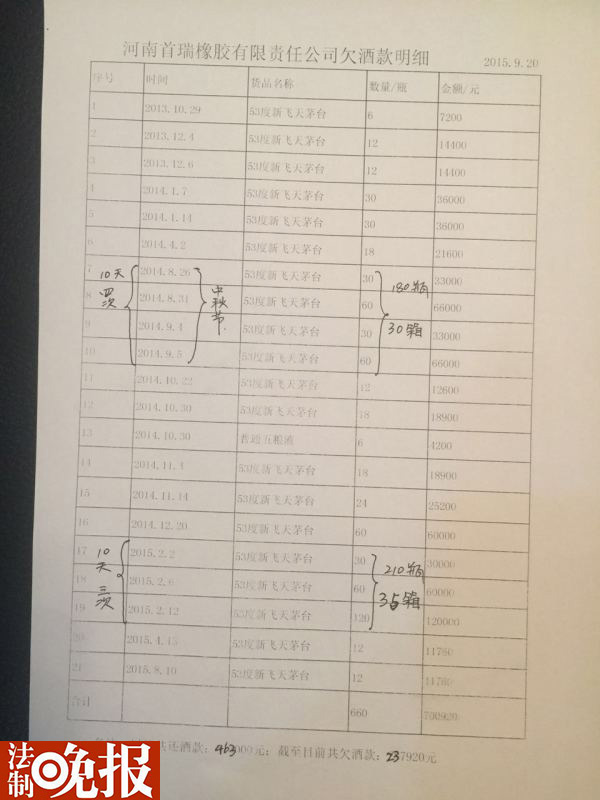 河南首瑞橡胶有限责任公司欠酒款明细 2015.9.20
序号 时间 货品名称 数量/瓶 金额/元
1 2013.10.29 53度新飞天茅台 6 7200
2 2013.12.4 53度新飞天茅台 12 14400
3 2013.12.6 53度新飞天茅台 12 14400
4 2014.1.7 53度新飞天茅台 30 36000
5 2014.1.14 53度新飞天茅台 30 36000
6 2014.4.2 53度新飞天茅台 18 21600
7 2014.8.26 53度新飞天茅台 30 33000
8 2014.8.31 53度新飞天茅台 60 66000
9 2014.9.4 53度新飞天茅台 30 33000
10 2014.9.5 53度新飞天茅台 60 66000
10天
四次
中秋节
180瓶
30箱
11 2014.10.22 53度新飞天茅台 12 12600
12 2014.10.30 53度新飞天茅台 18 18900
13 2014.10.30 普通五粮液 6 4200
14 2014.11.1 53度新飞天茅台 18 18900
15 2014.11.14 53度新飞天茅台 24 25200
16 2014.12.20 53度新飞天茅台 60 60000
17 2015.2.2 53度新飞天茅台 30 30000
18 2015.2.6 53度新飞天茅台 60 60000
19 2015.2.12 53度新飞天茅台 120 120000
10天
三次
210瓶
35箱
20 2015.4.15 53度新飞天茅台 12 11760
21 2015.8.10 53度新飞天茅台 12 11760
合计 660 700920
共还酒款：463000元；截至目前共欠酒款：237920元
法制晚报